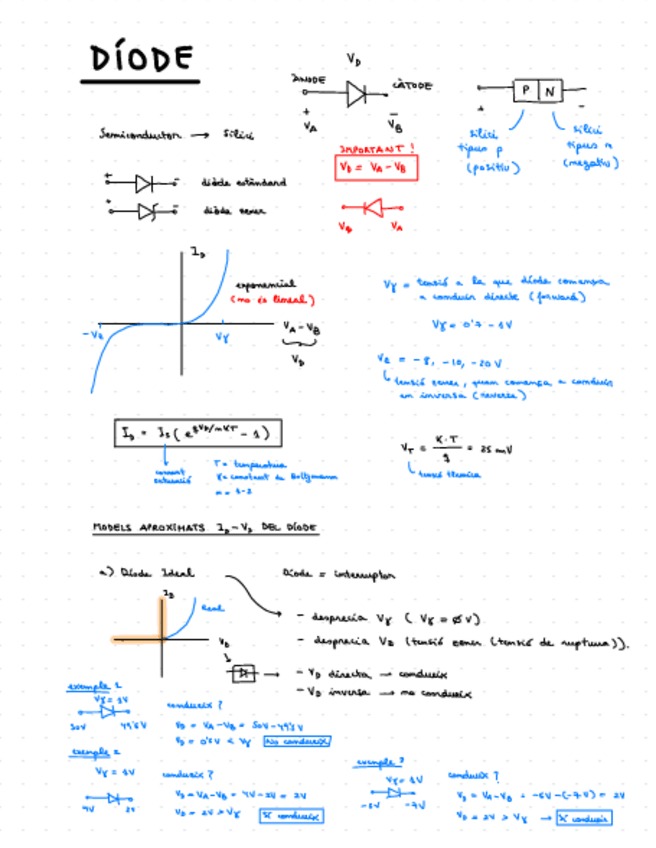 DÍODE
V_D
ÀNODE
CÀTODE
+
-
V_A
V_B
P N
+
-
silici tipus p (positiu)
silici tipus n (negatiu)
Semiconductor → Silici
IMPORTANT!
V_D = V_A - V_B
+ - díode estàndard
+ - díode zener
V_B
V_A
I_D
exponencial
(no és lineal)
-V_Z
Vγ
V_A - V_B
V_D
Vγ = tensió a la que díode comença
a conduir directe (forward)
Vγ = 0'7 - 1V
V_Z = -8, -10, -20V
tensió zener, quan comença a conduir
en inversa (reverse)
I_D = I_S (e^{qV_D/nKT} - 1)
corrent
saturació
T = temperatura
K = constant de Boltzmann
n = 1-2
V_T = K·T / q = 25 mV
tensió tèrmica
MODELS APROXIMATS I_D - V_D DEL DÍODE
a) Díode Ideal
Díode = interruptor
I_D
Real
V_D
- desprecia Vγ (Vγ = 0V)
- desprecia V_Z (tensió zener (tensió de ruptura)).
- V_D directa → condueix
- V_D inversa → no condueix
exemple 1
Vγ = 1V
50V
49'5V
condueix?
V_D = V_A - V_B = 50V - 49'5V
V_D = 0'5V < Vγ No condueix
exemple 2
Vγ = 1V
4V
2V
condueix?
V_D = V_A - V_B = 4V - 2V = 2V
V_D = 2V > Vγ Sí condueix
exemple 3
Vγ = 1V
-5V
-7V
condueix?
V_D = V_A - V_B = -5V - (-7V) = 2V
V_D = 2V > Vγ → Sí condueix